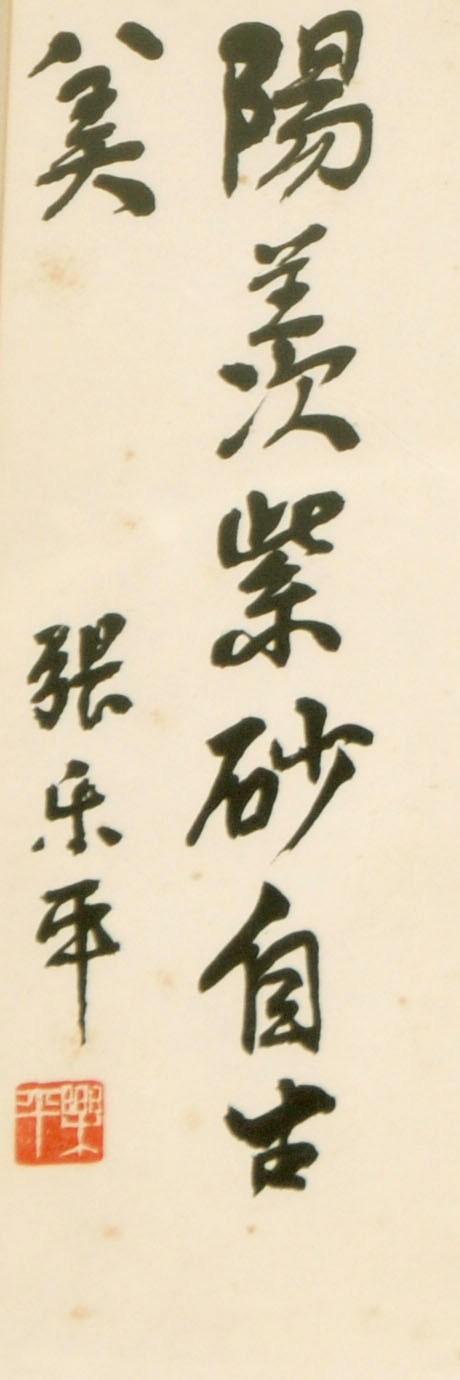 陽羡紫砂自古
美
張乐平
樂平